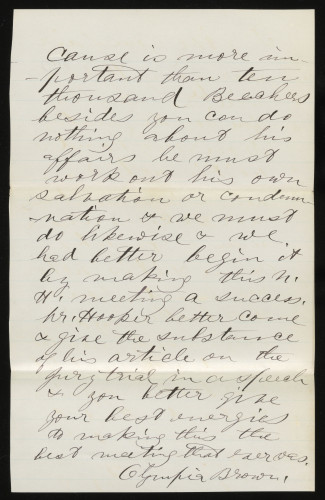 Cause is more im-
-portant than ten
thousand Beechers
besides you can do
nothing about his
affairs he must
work out his own
salvation or condem
-nation & we must
do likewise & we
had better begin it
by making this N.
H. meeting a success.
Mr. Hooper better come
& give the substance
of his article on the
jury trial in a speech
& you better give
your best energies
to making this the
best meeting that ever was.
Olympia Brown.